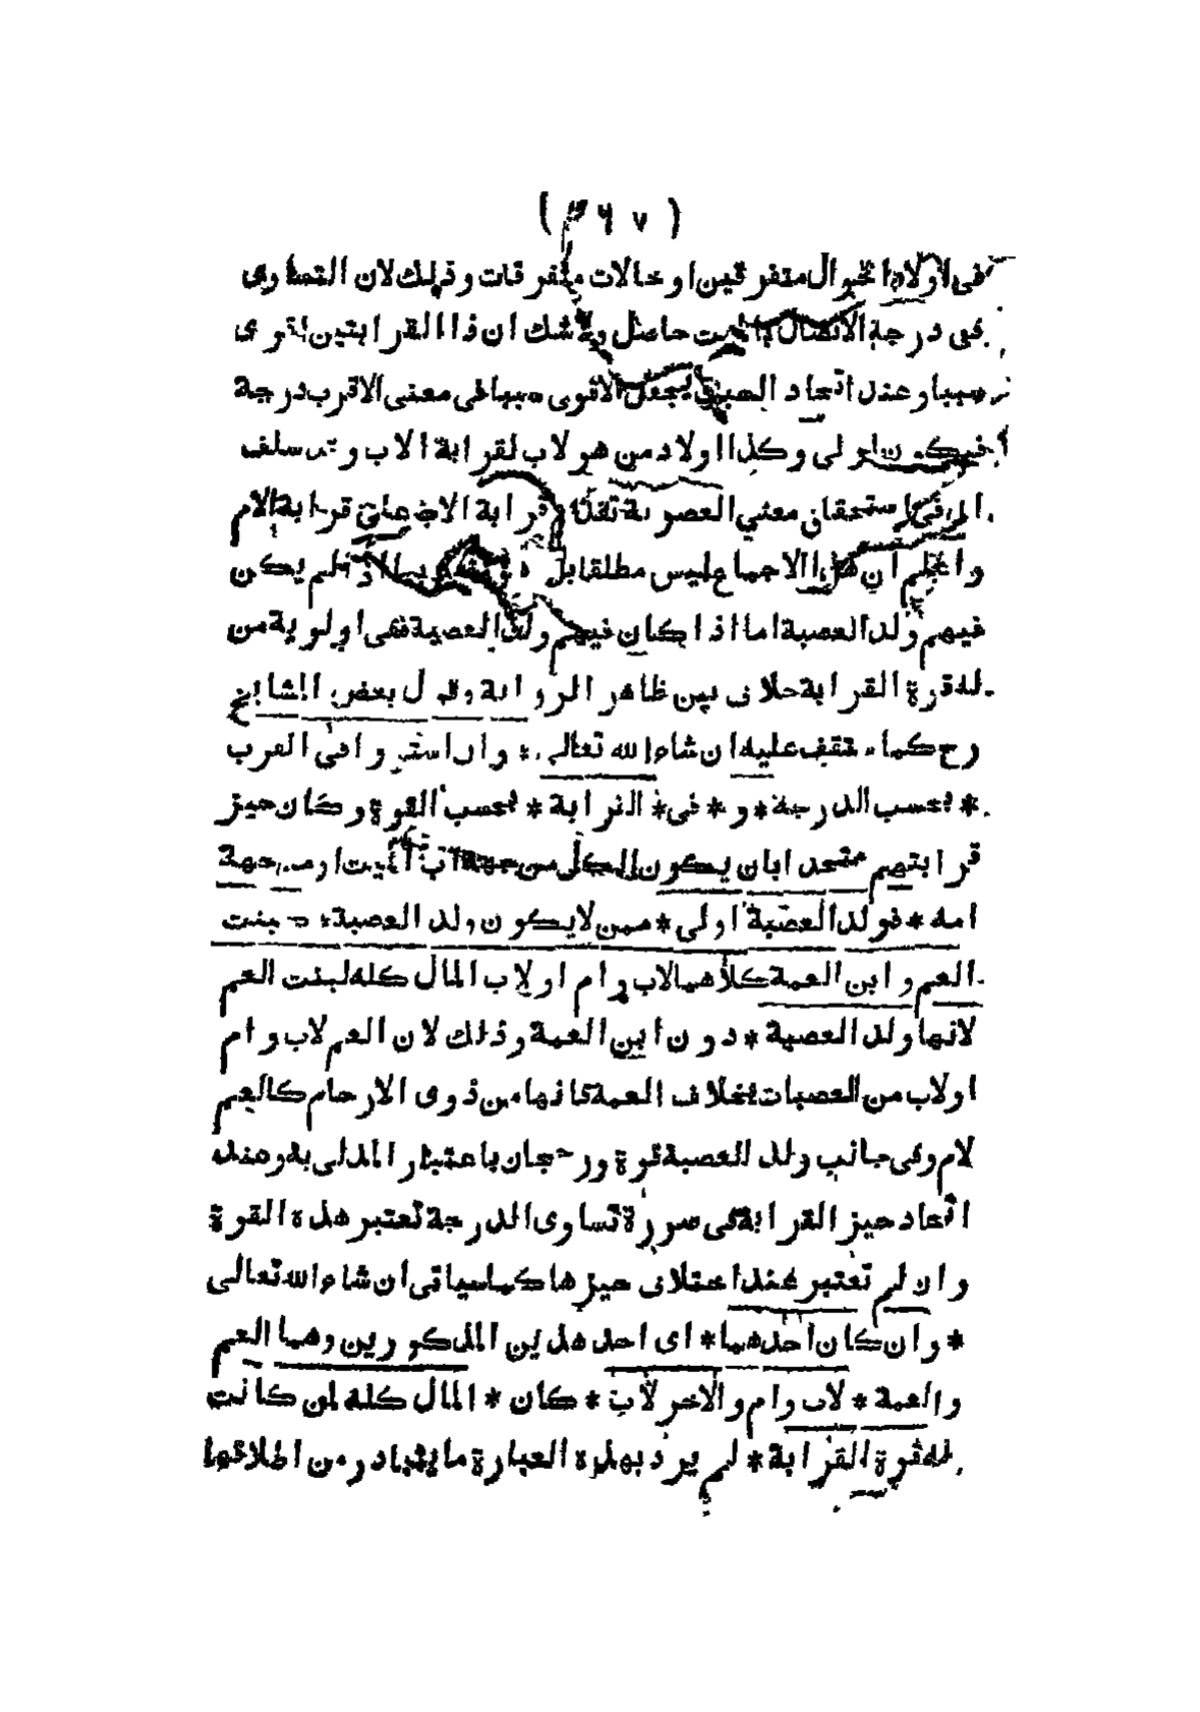 (٣٦٧)
فى اولاد اخوال متفرقين او خالات متفرقات وذلك لان التساوى
فى درجة الاتصال بالميت حاصل ولا شك ان ذا القرابتين اقوى
سببا وعند اتحاد السبب يجعل الاقوى سببا فى معنى الاقرب درجة
فيكون اولى وكذا اولاد من هو لاب لقرابة الاب وقد سلف
ان فى استحقاق معنى العصوبة تقدم قرابة الاب على قرابة الام
واعلم ان هذا الاجماع ليس مطلقا بل فيما اذا لم يكن
فيهم ولد العصبة اما اذا كان فيهم ولد العصبة ففى اولوية من
له قوة القرابة خلاف بين ظاهر الرواية وقول بعض المشايخ
رح كما ستقف عليه ان شاء الله تعالى * وان استووا فى القرب
* بحسب الدرجة * و * فى * القرابة * بحسب القوة وكان حيز
قرابتهم متحدا بان يكون الكل من جهة اب الميت او من جهة
امه * فولد العصبة اولى * ممن لا يكون ولد العصبة * كبنت
العم وابن العمة كلاهما لاب وام او لاب المال كله لبنت العم
لانها ولد العصبة * دون ابن العمة وذلك لان العم لاب وام
او لاب من العصبات بخلاف العمة فانها من ذوى الارحام كالعم
لام وفى جانب ولد العصبة قوة ورجحان باعتبار المدلى به وعند
اتحاد حيز القرابة فى صورة تساوى الدرجة تعتبر هذه القوة
وان لم تعتبر عند اختلاف حيزها كما سياتى ان شاء الله تعالى
* وان كان احدهما * اى احد هذين المذكورين وهما العم
والعمة * لاب وام والاخر لاب * كان * المال كله لمن كانت
له قوة القرابة * لم يرد بهذه العبارة ما يتبادر من اطلاقها